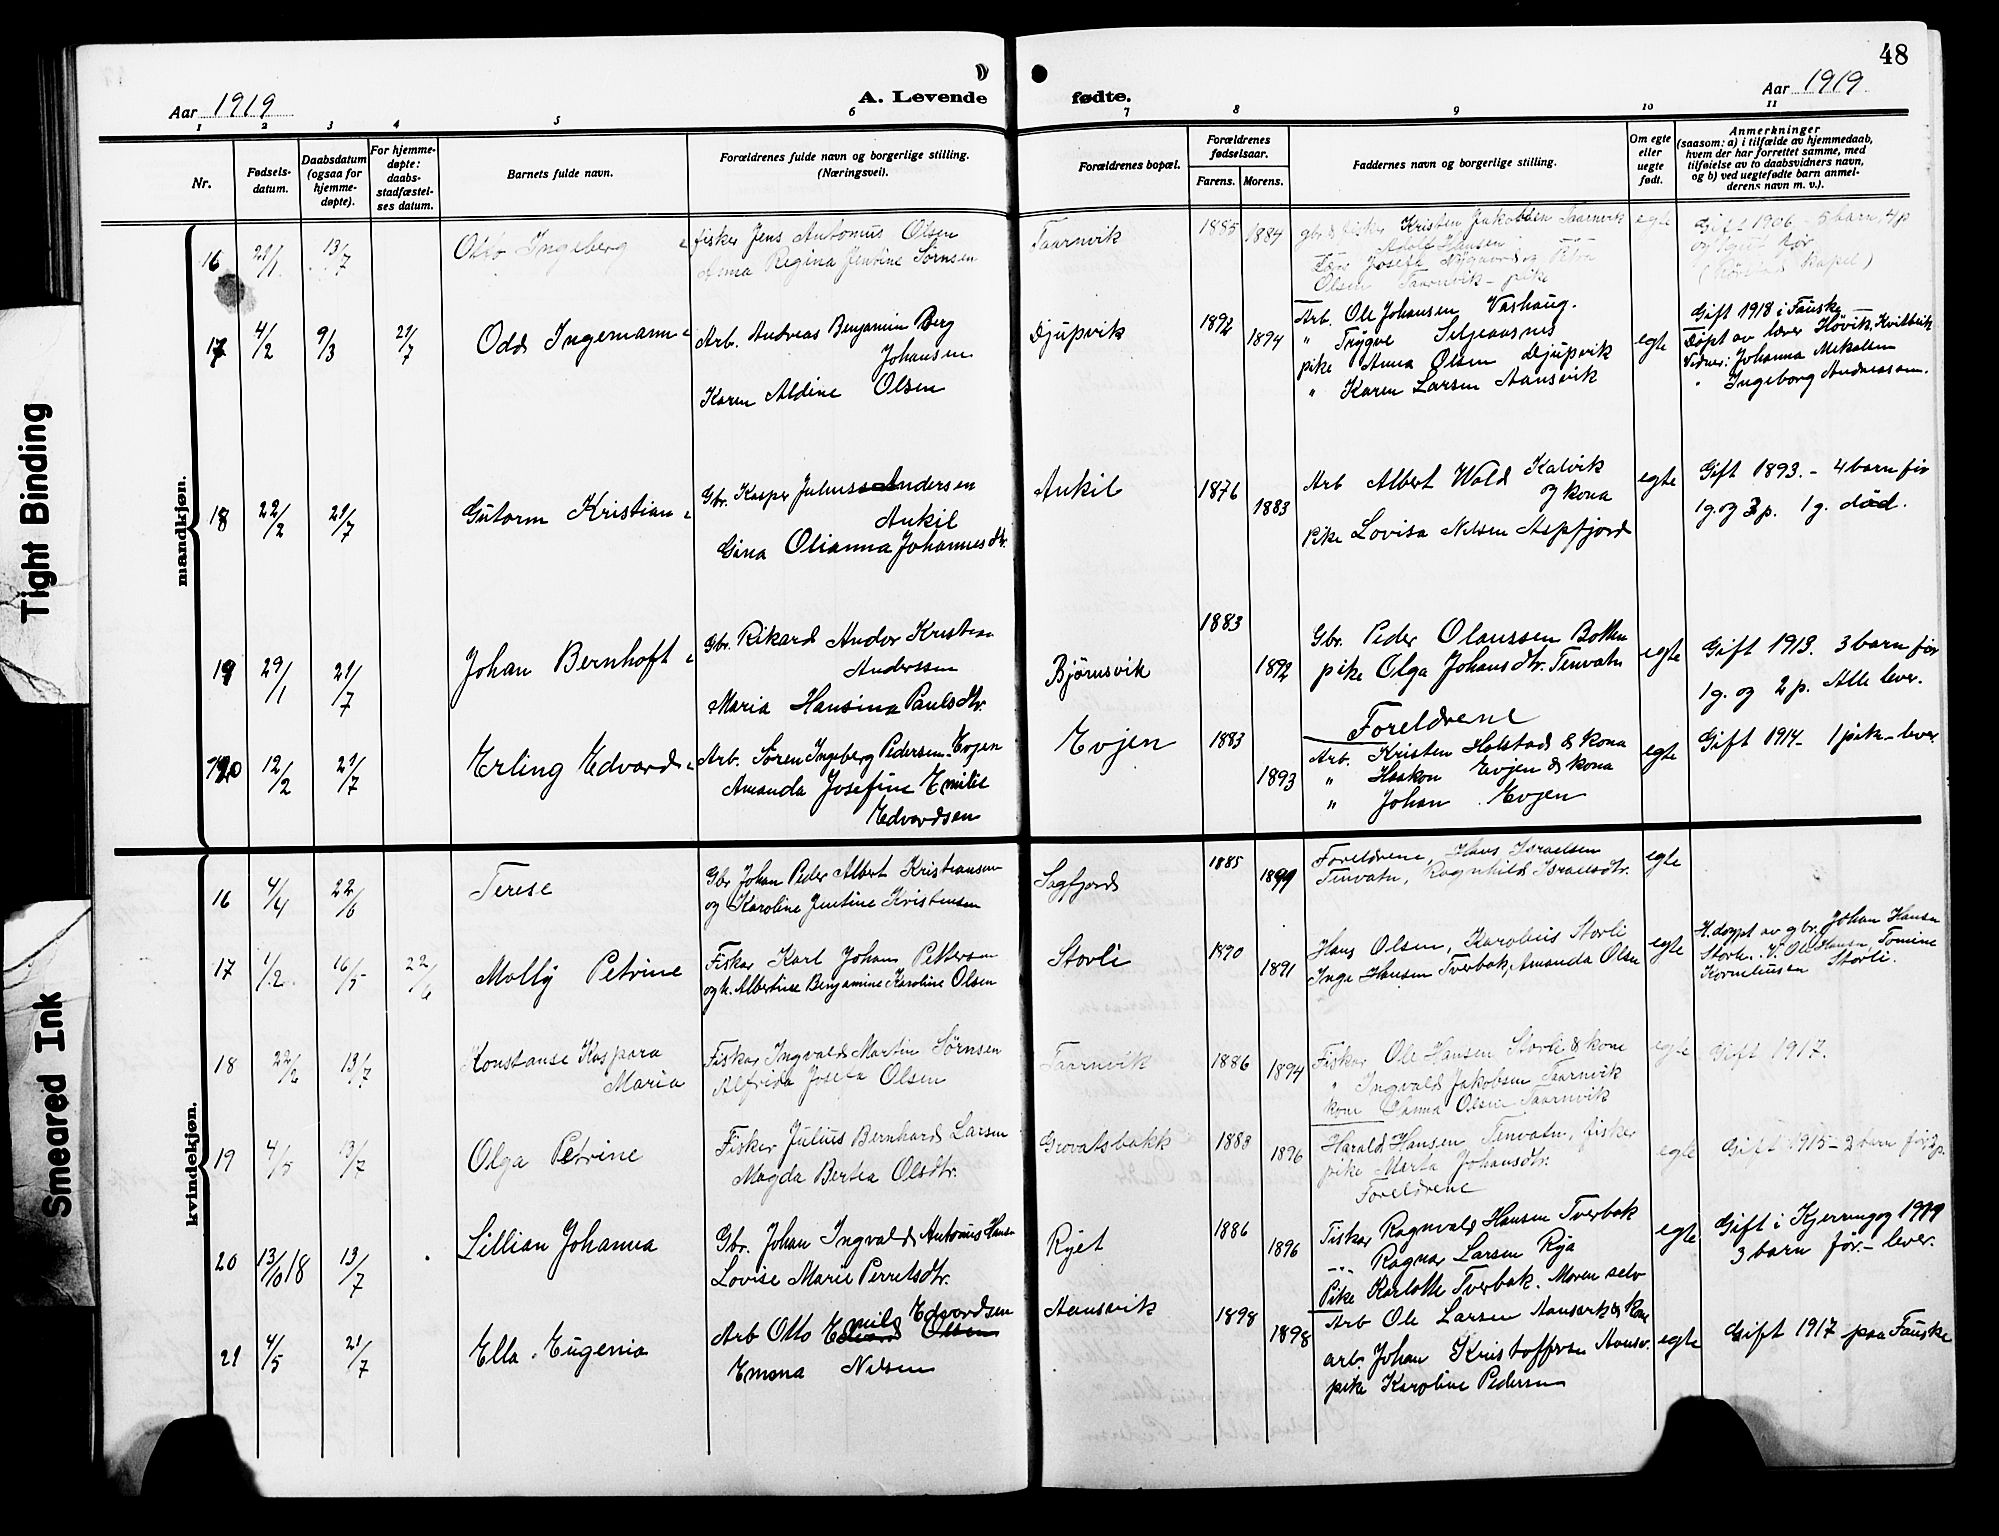 48
Aar 1919
A. Levende
fødte.
Aar 1919
1 2 3 4 5 6 7 8 9 10 11
Nr.
Fødsels-
datum.
Daabsdatum
(ogsaa for
hjemme-
døpte).
For hjemme-
døpte:
daabs-
stadfæstel-
ses datum.
Barnets fulde navn.
Forældrenes fulde navn og borgerlige stilling.
(Næringsvei).
Forældrenes bopæl.
Forældrenes
fødselsaar.
Farens. Morens.
Faddernes navn og borgerlige stilling.
Om egte
eller
uegte
født.
Anmerkninger
(saasom: a) i tilfælde av hjemmedaab,
hvem der har forrettet samme, med
tilføielse av to daabsvidners navn,
og b) ved uegtefødte barn anmel-
derens navn m. v.).
mandkjøn.
16 21/1 13/7
Otto Ingeberg
fisker Jens Antonius Olsen
Anna Regina Jentine Sørnsen
Taarnvik
1885 1884
gbr & fisker Kristen Jakobsen Taarnvik
Adolf Hansen
Josefa Nygaard og Petra
Olsen Taarnvik - pike
egte
Gift 1906 - 5 barn, 4 p
og 1 gut før
17 4/2 9/3 21/7
Odd Ingemann
Arb. Andreas Benjamin Berg
Johansen
Karen Aldine Olsen
Djupvik
1892 1894
Arb. Ole Johansen Vashaug.
" Trygve Seljeaasnes
pike Anna Olsen Djupvik
" Karen Larsen Aansvik
egte
Gift 1918 i Fauske
Døpt av lærer Hövik, Kvitblik
Vidner: Johanna Mikalsen
" Ingeborg Andreassen.
18 22/2 21/7
Gutorm Kristian
Gbr. Kasper Julius Andersen
Ankil
Gina Olianna Johannesdtr.
Ankil
1876 1883
Arb Albert Wold Kalvik
og kona
Pike Lovisa Nilsen Aspfjord
egte
Gift 1893. - 4 barn før
1 g. og 3 p. 1 g. død.
19 29/1 21/7
Johan Bernhoft
Gbr. Rikard Andor Kristian
Anderssen
Maria Hansina Paulsdtr.
Bjørnsvik
1883 1892
Gbr. Peder Olaussen Botten
pike Olga Johansdtr. Tenvatn
Foreldrene
egte
Gift 1913. 3 barn før
1 g. og 2 p. Alle lever.
20 12/2 21/7
Erling Edvard
Arb. Sören Ingeberg Pedersen Evjen
Amanda Josefine Emilie
Edvardsen
Evjen
1883 1893
Arb. Kristen Holstad & kona
" Haakon Evjen & kona
" Johan Evjen
egte
Gift 1914 - 1 pike - lever
kvindekjøn.
16 4/4 22/6
Terese
Gbr Johan Peder Albert Kristiansen
og Karoline Jentine Kristensen
Sagfjord
1885 1899
Foreldrene, Hans Israelsen
Tenvatn, Ragnhild Israelsdtr.
egte
17 1/2 16/5 22/6
Molly Petrine
Fisker Karl Johan Pettersen
og k. Albertine Benjamine Karoline Olsen
Storli
1890 1891
Hans Olsen, Karolius Storli
Inga Hansen Tverbak, Amanda Olsen
egte
H. døypt av gbr. Johan Hansen
Storli. V. Ole Hansen, Tomine
Korneliussen Storli.
18 22/2 13/7
Konstanse Kaspara
Maria
Fisker Ingvald Martin Sørnsen
Alfrida Josefa Olsen
Taarnvik
1886 1894
Fisker Ole Hansen Storli & kone
" Ingvald Jakobsen Taarnvik
kone Hanna Olsen Taarnvik
egte
Gift 1917.
19 4/5 13/7
Olga Petrine
Fisker Julius Bernhard Larsen
Magda Bertea Olsdtr.
Grovatsbakk
1883 1896
Harald Hansen Tenvatn, fisker
pike Marta Johansdtr.
Foreldrene
egte
Gift 1915 - 2 barn før 2 p.
20 13/10 18 13/7
Lillian Johanna
Gbr. Johan Ingvald Antonius Hansen
Lovise Marie Perretsdtr.
Ryet
1886 1896
Fisker Ragnvald Hansen Tverbak
Ragnar Larsen Rya
Pike Karlotte Tverbak. Moren selv
egte
Gift i Kjerringøy
3 barn før. - lever.
21 4/5 21/7
Ella Eugenia
Arb Otto Emil Edvardsen
Emma Nilsen
Aansvik
1898 1898
Arb Ole Larsen Aansvik & kone
arb. Johan Kristoffersen Aansv.
pike Karoline Pedersen
egte
Gift 1917 paa Fauske
Tight Binding
Smeared Ink